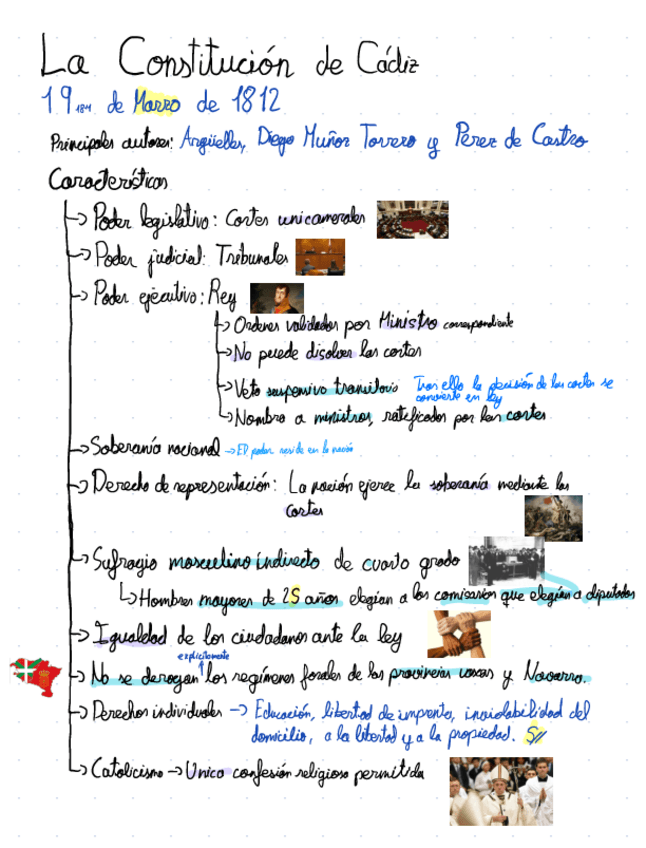 La Constitución de Cádiz
19 de Marzo de 1812
Principales autores: Argüelles, Diego Muñoz Torrero y Perez de Castro
Características
→ Poder legislativo: Cortes unicamerales
→ Poder judicial: Tribunales
→ Poder ejecutivo: Rey
→ Ordenes validadas por Ministro correspondiente
→ No puede disolver las cortes
→ Veto suspensivo transitorio Tras ello la decisión de las cortes se
convierte en ley
→ Nombra a ministros, ratificados por las cortes
→ Soberanía nacional → El poder reside en la nación
→ Derecho de representación: La nación ejerce la soberanía mediante las
cortes
→ Sufragio masculino indirecto de cuarto grado
→ Hombres mayores de 25 años elegian a los comisarios que elegían a diputados
→ Igualdad de los ciudadanos ante la ley
explícitamente
→ No se derogan los regímenes forales de las provincias vascas y Navarra.
→ Derechos individuales → Educación, libertad de imprenta, inviolabilidad del
domicilio, a la libertad y a la propiedad.
→ Catolicismo → Unica confesión religiosa permitida